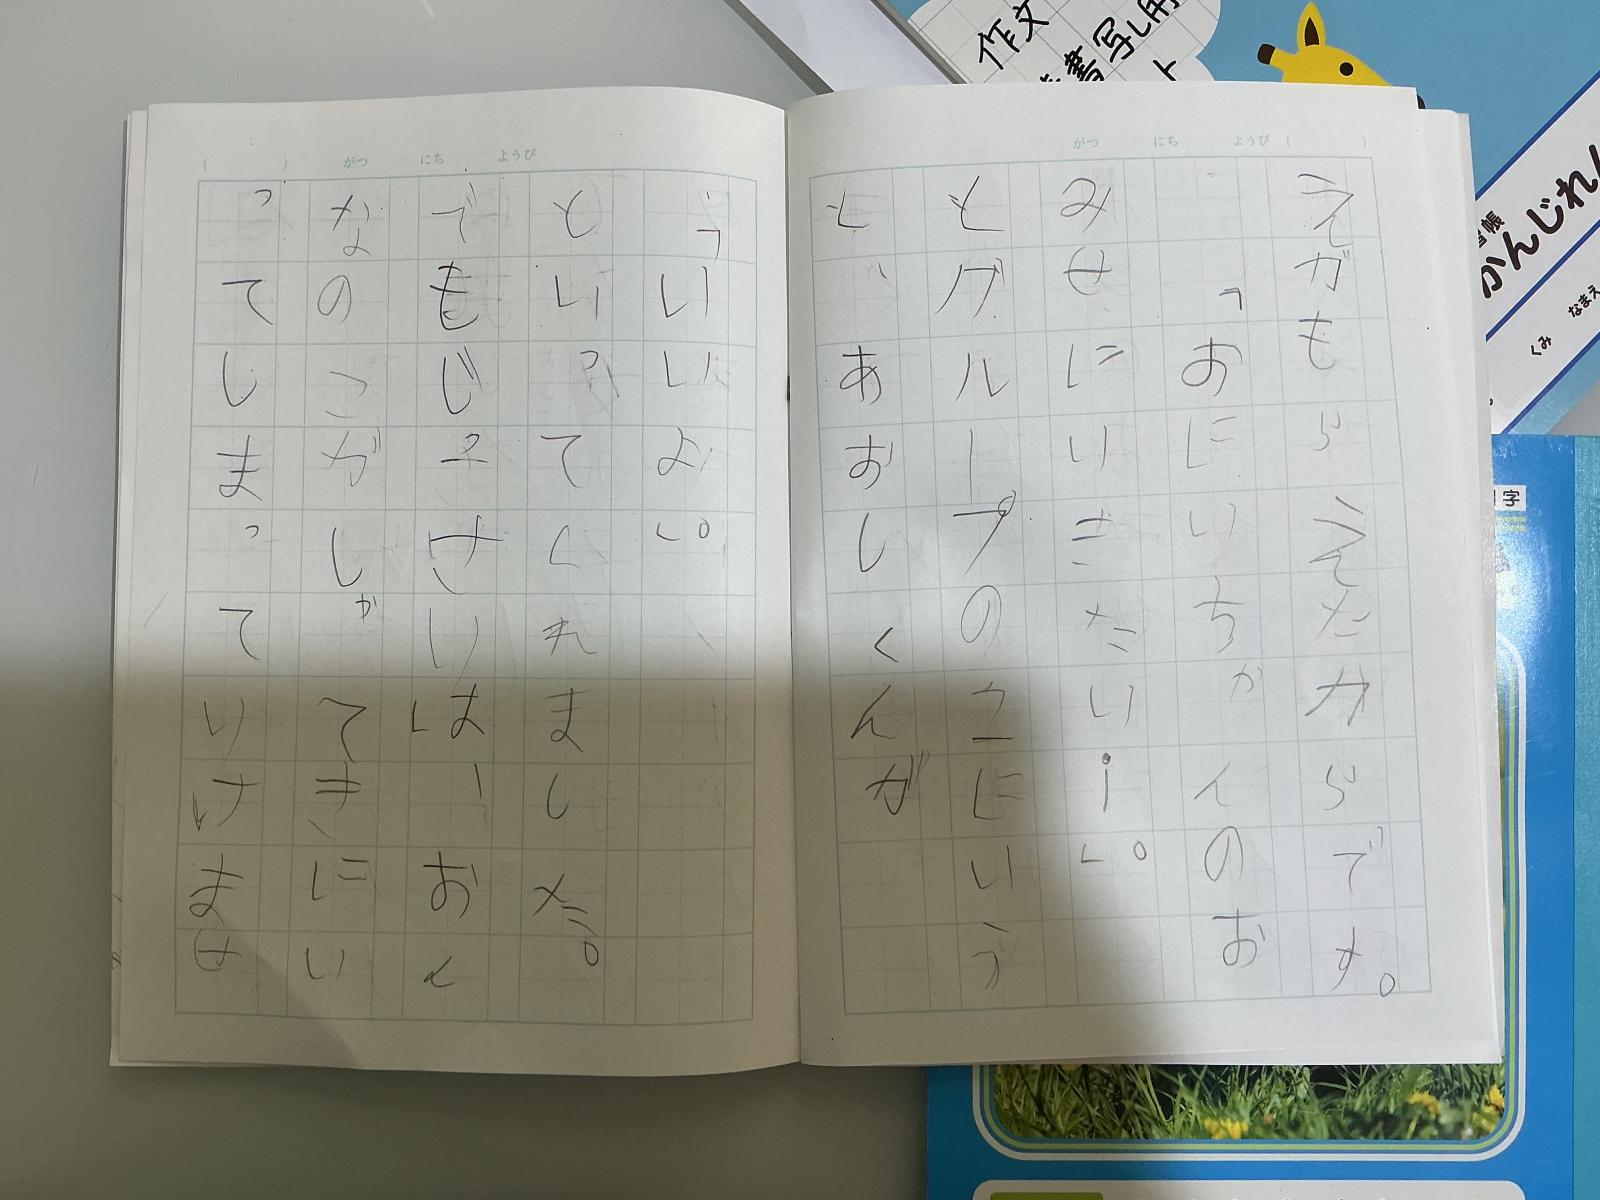 がつ にち ようび
えがもらえたからです。
「おにいちゃんのお
みせにいきたい!」。
とグループのこにいう
と、あおしくんが
がつ にち ようび
、「いいよ」。
といってくれました。
でもじっさいは、おん
なのこがしゃてきにい
ってしまっていけませ
作文
書写し用
ト
帳
かんじれん
くみ なまえ
字